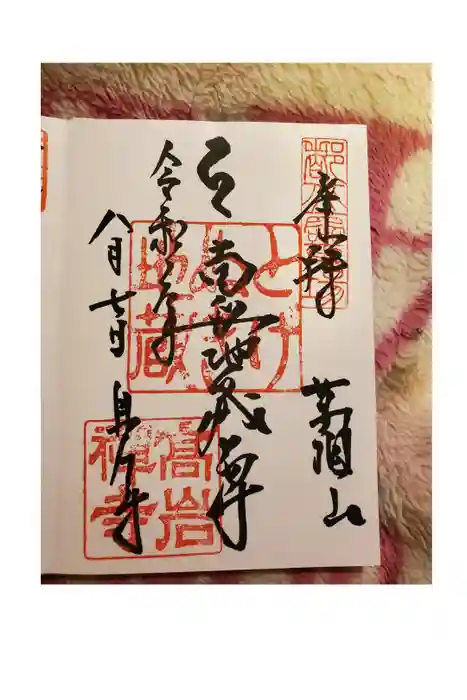 奉拝
萬頂山
南無地蔵尊
令和
八月七日
高岩寺
とげぬき地蔵
高岩禅寺